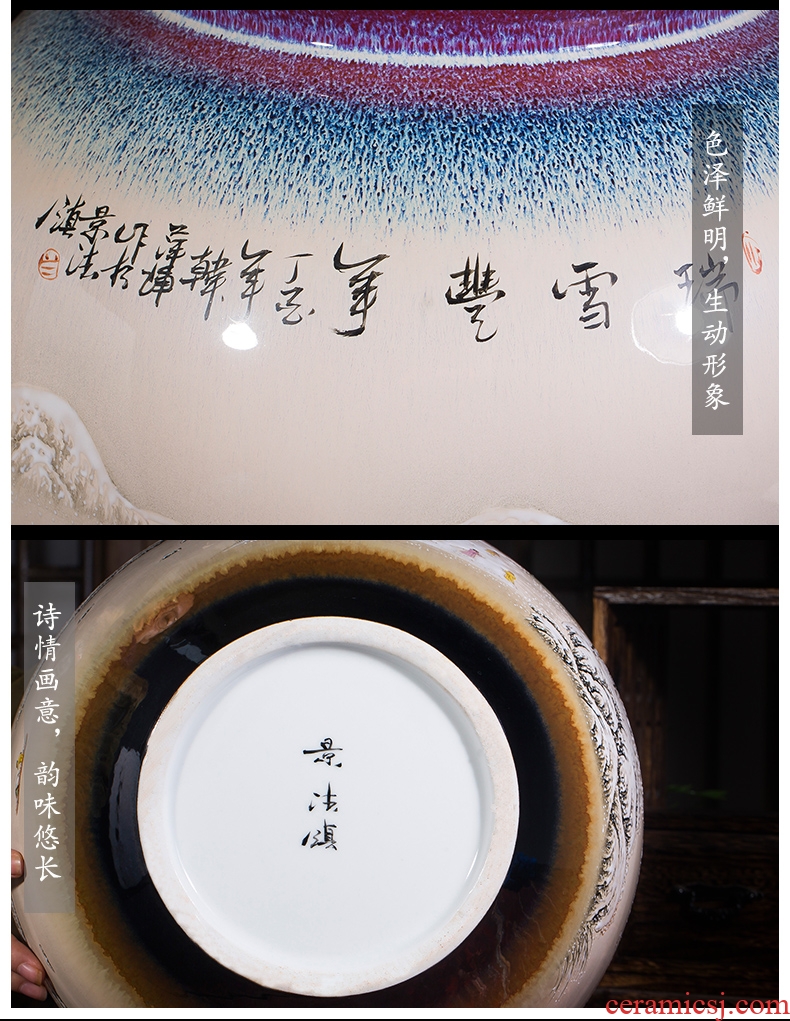 色泽鲜明，生动形象
瑞雪豐年
丁酉
年
作於
景德
鎮
诗情画意，韵味悠长
景德鎮
ceramicsj.com